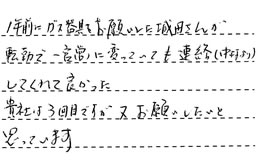 1年前にガス器具をお願いした成田さんが
転勤で一宮に変っていても連絡(中村さん)
してくれて良かった
貴社は3回目ですが又お願いしたいと
思っています